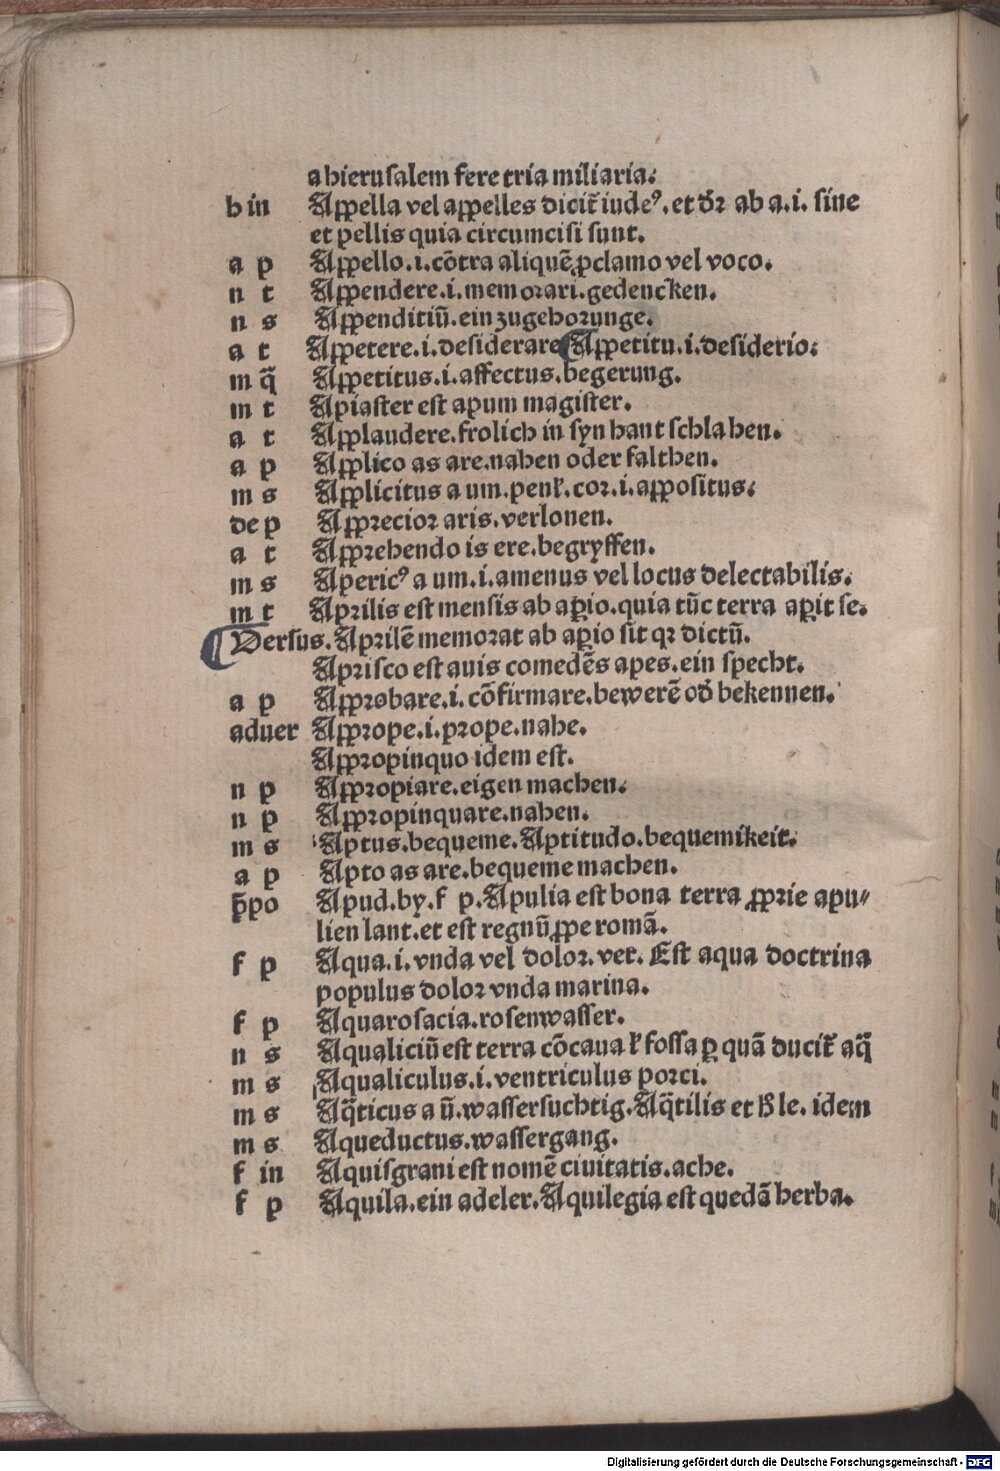 a hierusalem fere tria miliaria.
h in Appella vel appelles dicit̃ iudeꝰ. et dr̃ ab a. i. sine
et pellis quia circumcisi sunt.
a p Appello .i. cõtra aliquẽ ꝓclamo vel voco.
n t Appendere .i. memorari. gedencken.
n s Appenditiũ. ein zugehorunge.
a t Appetere .i. desiderare Appetitu .i. desiderio.
m q̃ Appetitus .i. affectus. begerung.
m t Apiaster est apum magister.
a t Applaudere. frolich in syn hant schlahen.
a p Applico as are. nahen oder falthen.
m s Applicitus a um. penl̃. cor. i. appositus.
de p Apprecior aris. verlonen.
a t Apprehendo is ere. begryffen.
m s Apericꝰ a um .i. amenus vel locus delectabilis.
m t Aprilis est mensis ab aꝑio. quia tũc terra aꝑit se.
Versus. Aprilẽ memorat ab aꝑio sit qꝛ dictũ.
Aprisco est auis comedẽs apes. ein specht.
a p Approbare .i. cõfirmare. bewerẽ od̃ bekennen.
aduer Apprope .i. prope. nahe.
Appropinquo idem est.
n p Appropiare. eigen machen.
n p Appropinquare. nahen.
m s Aptus. bequeme. Aptitudo. bequemikeit.
a p Apto as are. bequeme machen.
p̃po Apud. by. f p. Apulia est bona terra ꝓprie apu⸗
lien lant. et est regnũ ꝓpe romã.
f p Aqua .i. vnda vel dolor. ver. Est aqua doctrina
populus dolor vnda marina.
f p Aquarosacia. rosenwasser.
n s Aqualiciũ est terra cõcaua l̃ fossa ꝑ quã ducit̃ aq̃
m s Aqualiculus .i. ventriculus porci.
m s Aq̃ticus a ũ. wassersuchtig. Aq̃tilis et h̃ le. idem
m s Aqueductus. wassergang.
f in Aquisgrani est nomẽ ciuitatis. ache.
f p Aquila. ein adeler. Aquilegia est quedã herba.
Digitalisierung gefördert durch die Deutsche Forschungsgemeinschaft - DFG